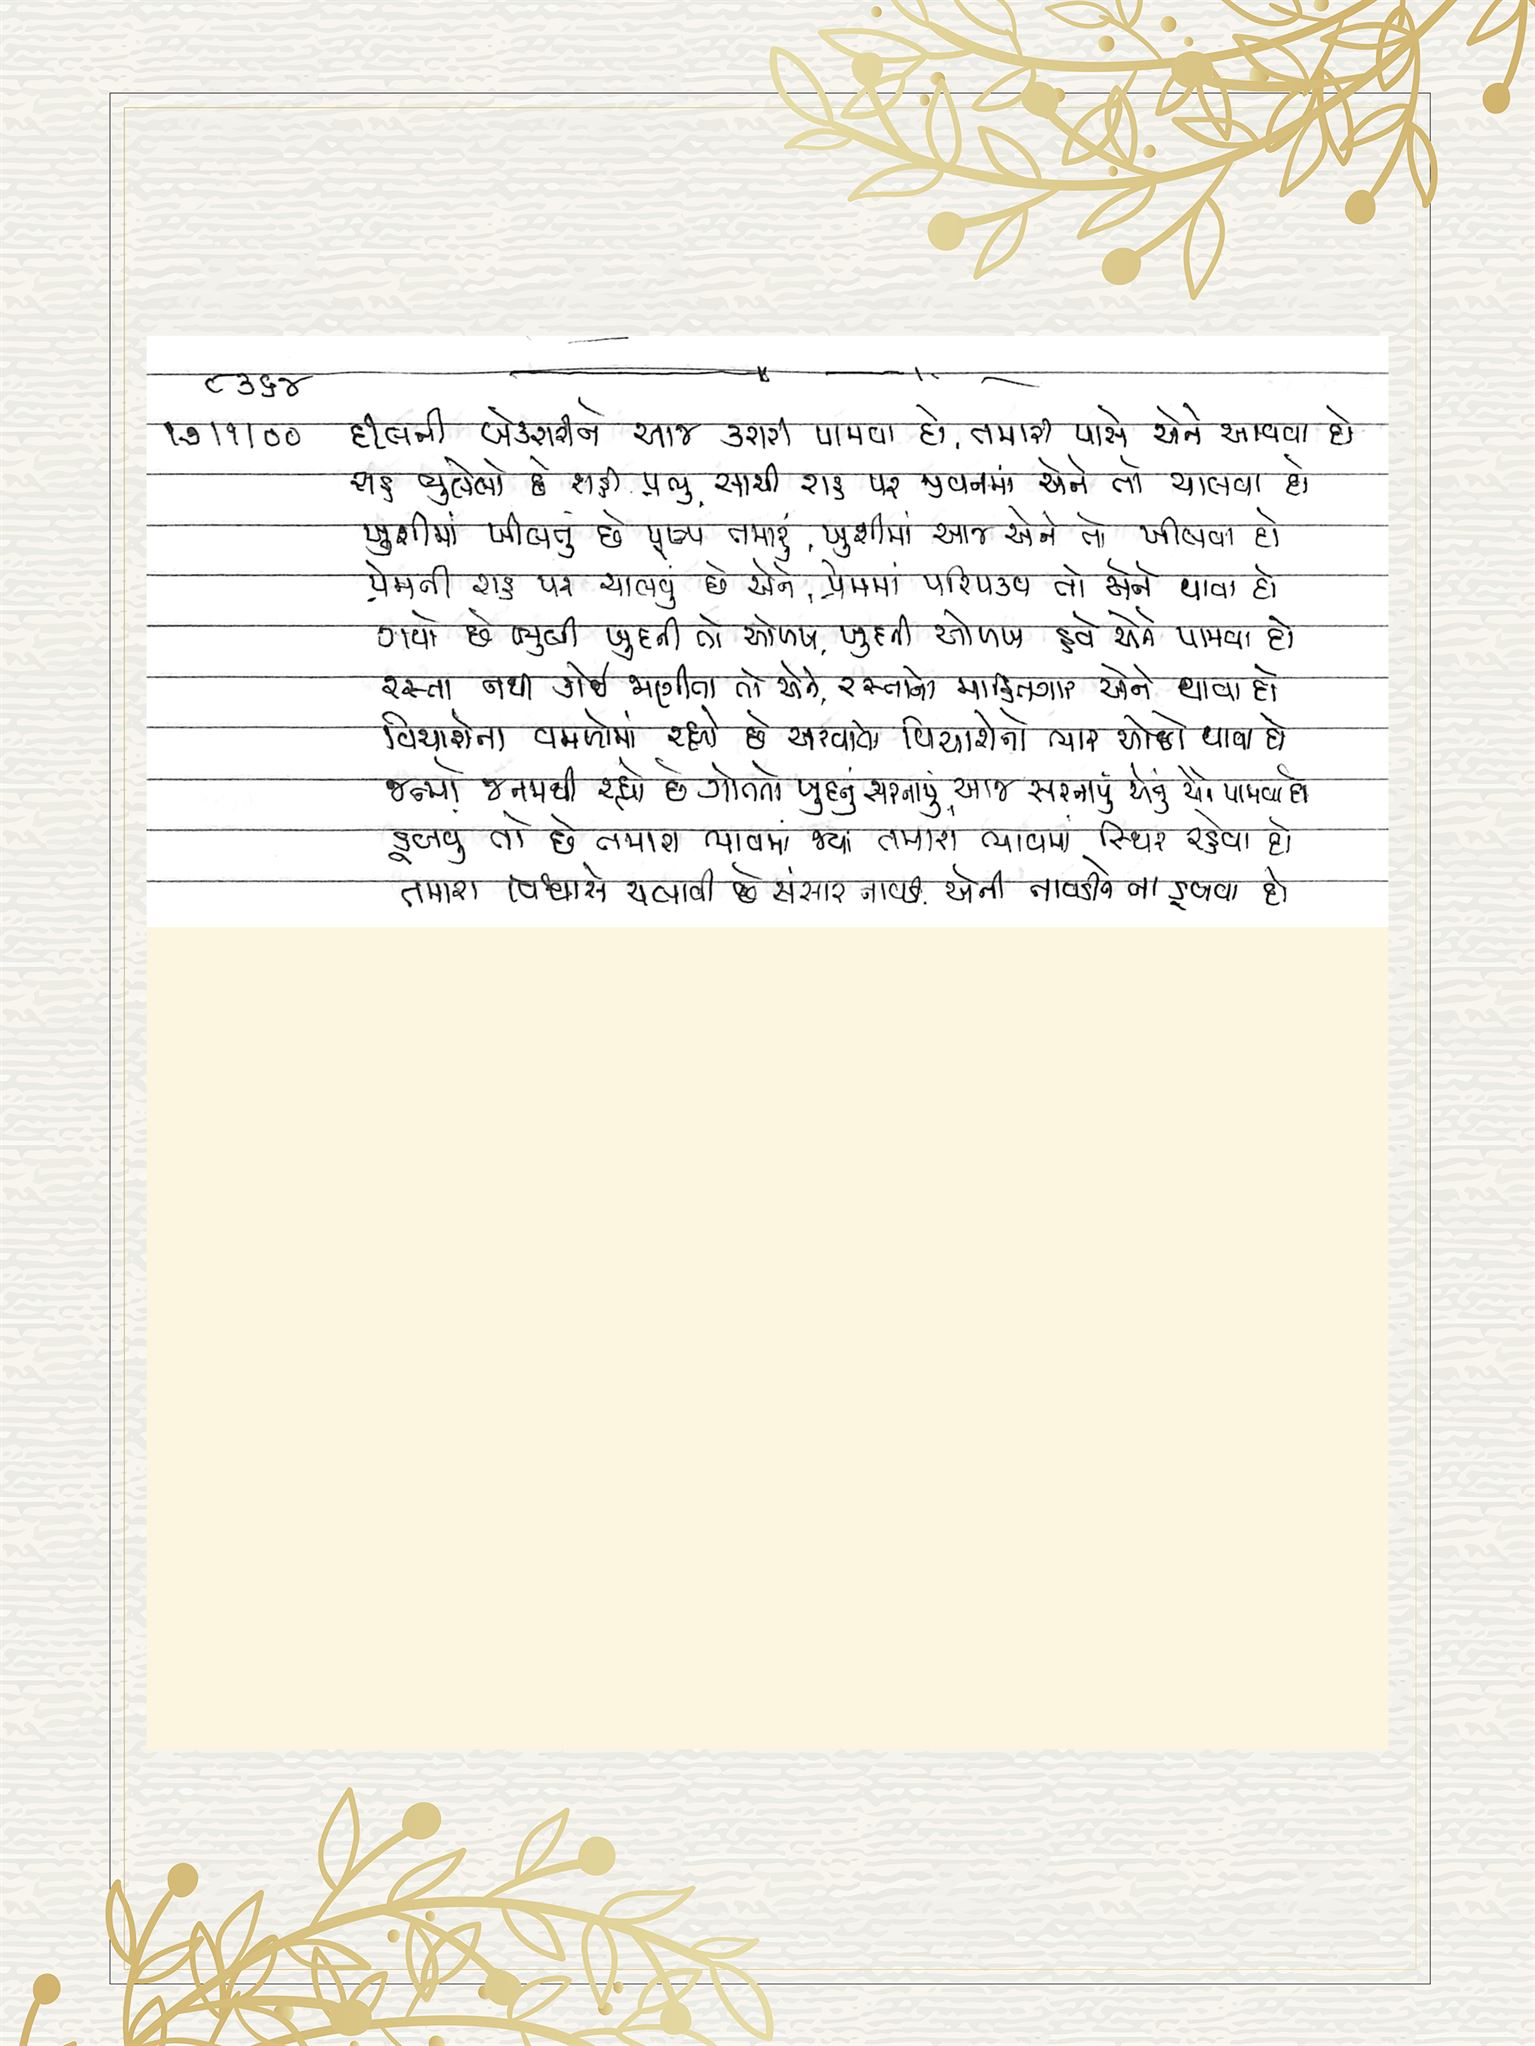 ૮૩૬૪
૧૭/૧/૦૦ દીલની બેકરારીને આજ કરારી પામવા દો, તમારી પાસે એને આવવા દો
રાહ ભુલેલો છે રાહી પ્રભુ, સાચી રાહ પર જીવનમાં એને તો ચાલવા દો
ખુશીમાં ખીલતું છે પુષ્પ તમારું, ખુશીમાં આજ એને તો ખીલવા દો
પ્રેમની રાહ પર ચાલવું છે એને, પ્રેમમાં પરિપકવ તો એને થાવા દો
ગયો છે ભુલી ખુદની તો ઓળખ, ખુદની ઓળખ હવે એને પામવા દો
રસ્તા નથી કોઈ જાણીતા તો એને, રસ્તાનો માહિતગાર એને થાવા દો
વિચારોના વમળોમાં રહ્યો છે અટવાતો વિચારોનો ભાર ઓછો થાવા દો
જન્મો જનમથી રહ્યો છે ગોતતો ખુદનું સરનામું, આજ સરનામું એનું એને પામવા દો
ડૂબવું તો છે તમારા ભાવમાં જ્યાં તમારા ભાવમાં સ્થિર રહેવા દો
તમારા વિશ્વાસે ચલાવી છે સંસાર નાવડી, એની નાવડીને ના ડૂબવા દો